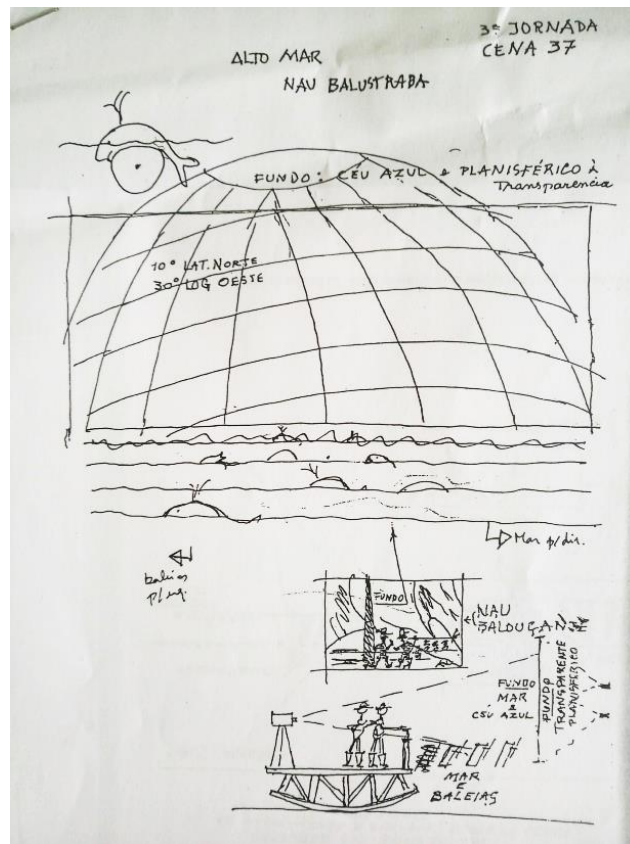 3ª JORNADA
CENA 37
ALTO MAR
NAU BALUSTRABA
FUNDO: CÉU AZUL e PLANISFÉRICO à
Transparencia
10° LAT. NORTE
30° LOG OESTE
Mar p/dir.
FUNDO
NAU
MAR
E
BALEIAS
FUNDO
MAR
e
CÉU AZUL
FUNDO
TRANSPARENTE
PLANISFÉRICO